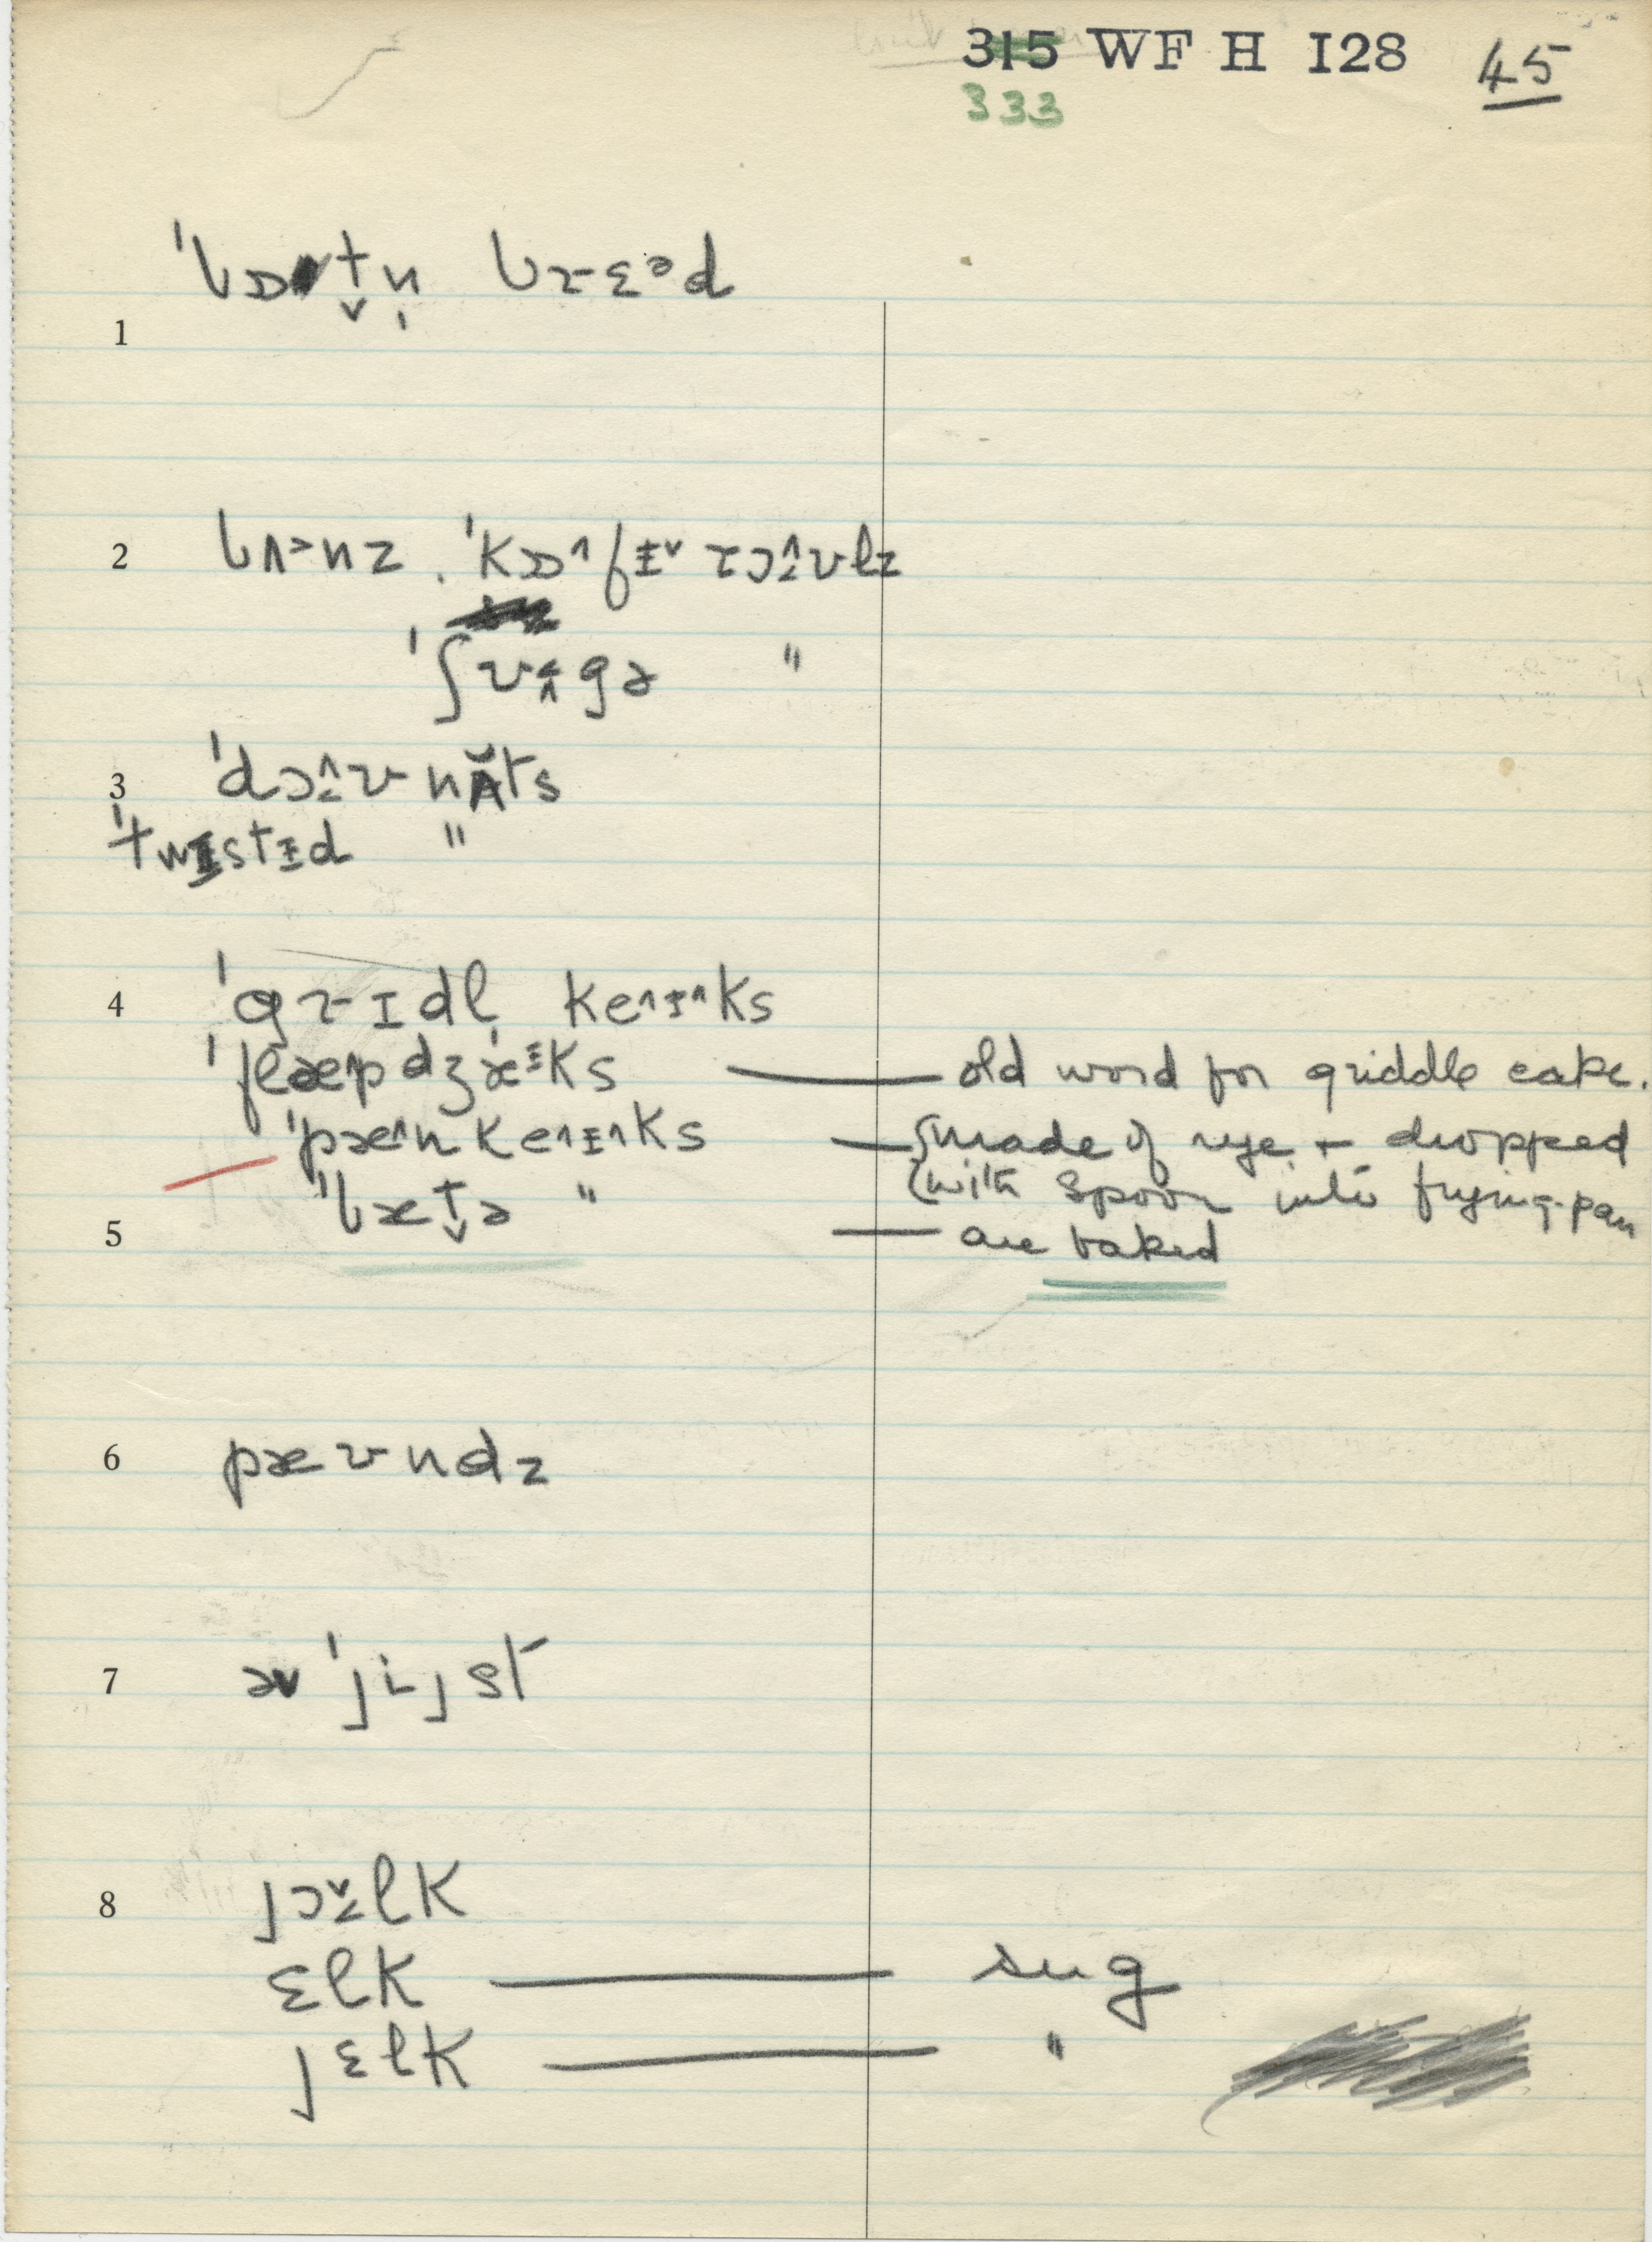 315 WF H 128 45
333
ˈbɒt̬n̩ brɛᵊd
1
2 bʌ˃nz . ˈkɒ˄fɪ˅ rɔ˄ʊlz
ˈʃʊ˄gə "
3 ˈdɔ˄ʊnʌ̆ts
ˈtwɪstɪd "
4 ˈgrɪdl̩ ke˄ɪ˄ks
ˈflæpdʒæᶦks — old word for griddle cake.
ˈpæ˄nke˄ɪ˄ks — {made of rye + dropped
ˈbæt̬ə " with spoon into frying-pan
5 — are baked
6 pæʊndz
7 əv ˈjijst
8 jɔ˅lk
ɛlk — sug
jɛlk — "